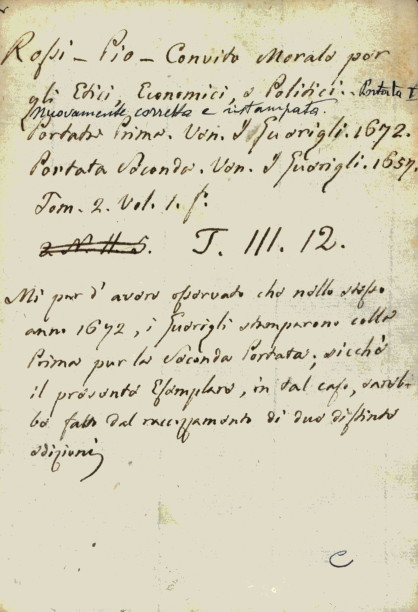 Rossi - Pio - Convito Morale per
gli Etici, Economici, e Politici. - Portata I
Nuovamente corretta e ristampata.
Portata Prima. Ven. I Guerigli. 1672.
Portata Seconda. Ven. I Guerigli. 1657.
Tom. 2. Vol. 1. f.º
T. III. 12.
Mi par d'avere osservato che nello stesso
anno 1672, i Guerigli stamparono colla
Prima pur la Seconda Portata; sicchè
il presente Esemplare, in tal caso, sareb-
be fatto dal raccozzamento di due distinte
edizioni
C